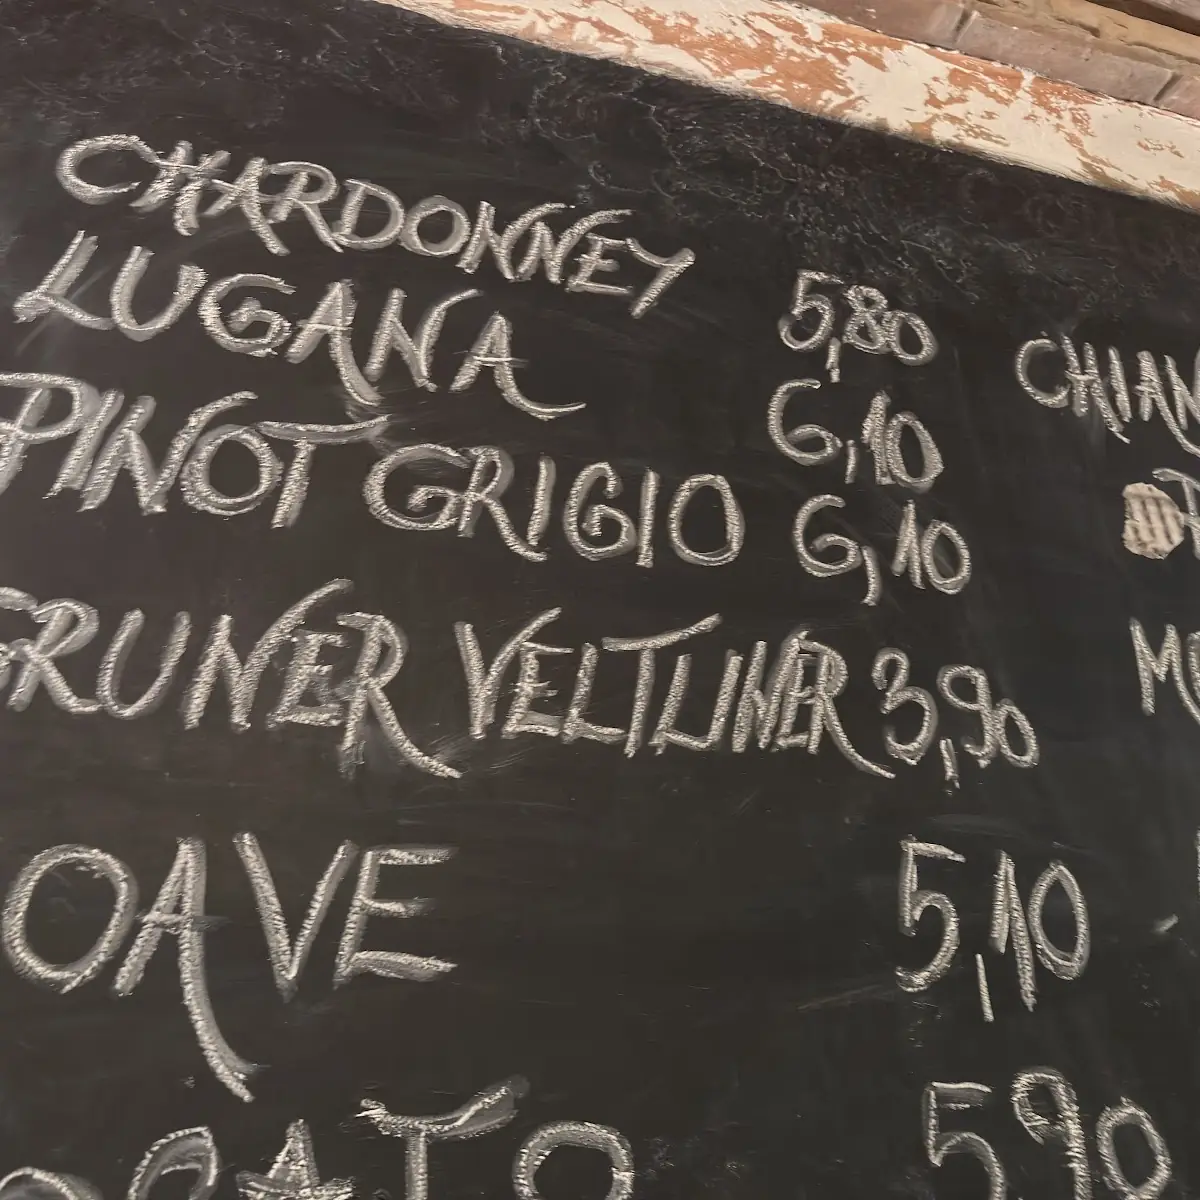 CHARDONNEY 5,80
LUGANA 6,10
PINOT GRIGIO 6,10
GRUNER VELTLINER 3,90
OAVE 5,10
590
CHIAN